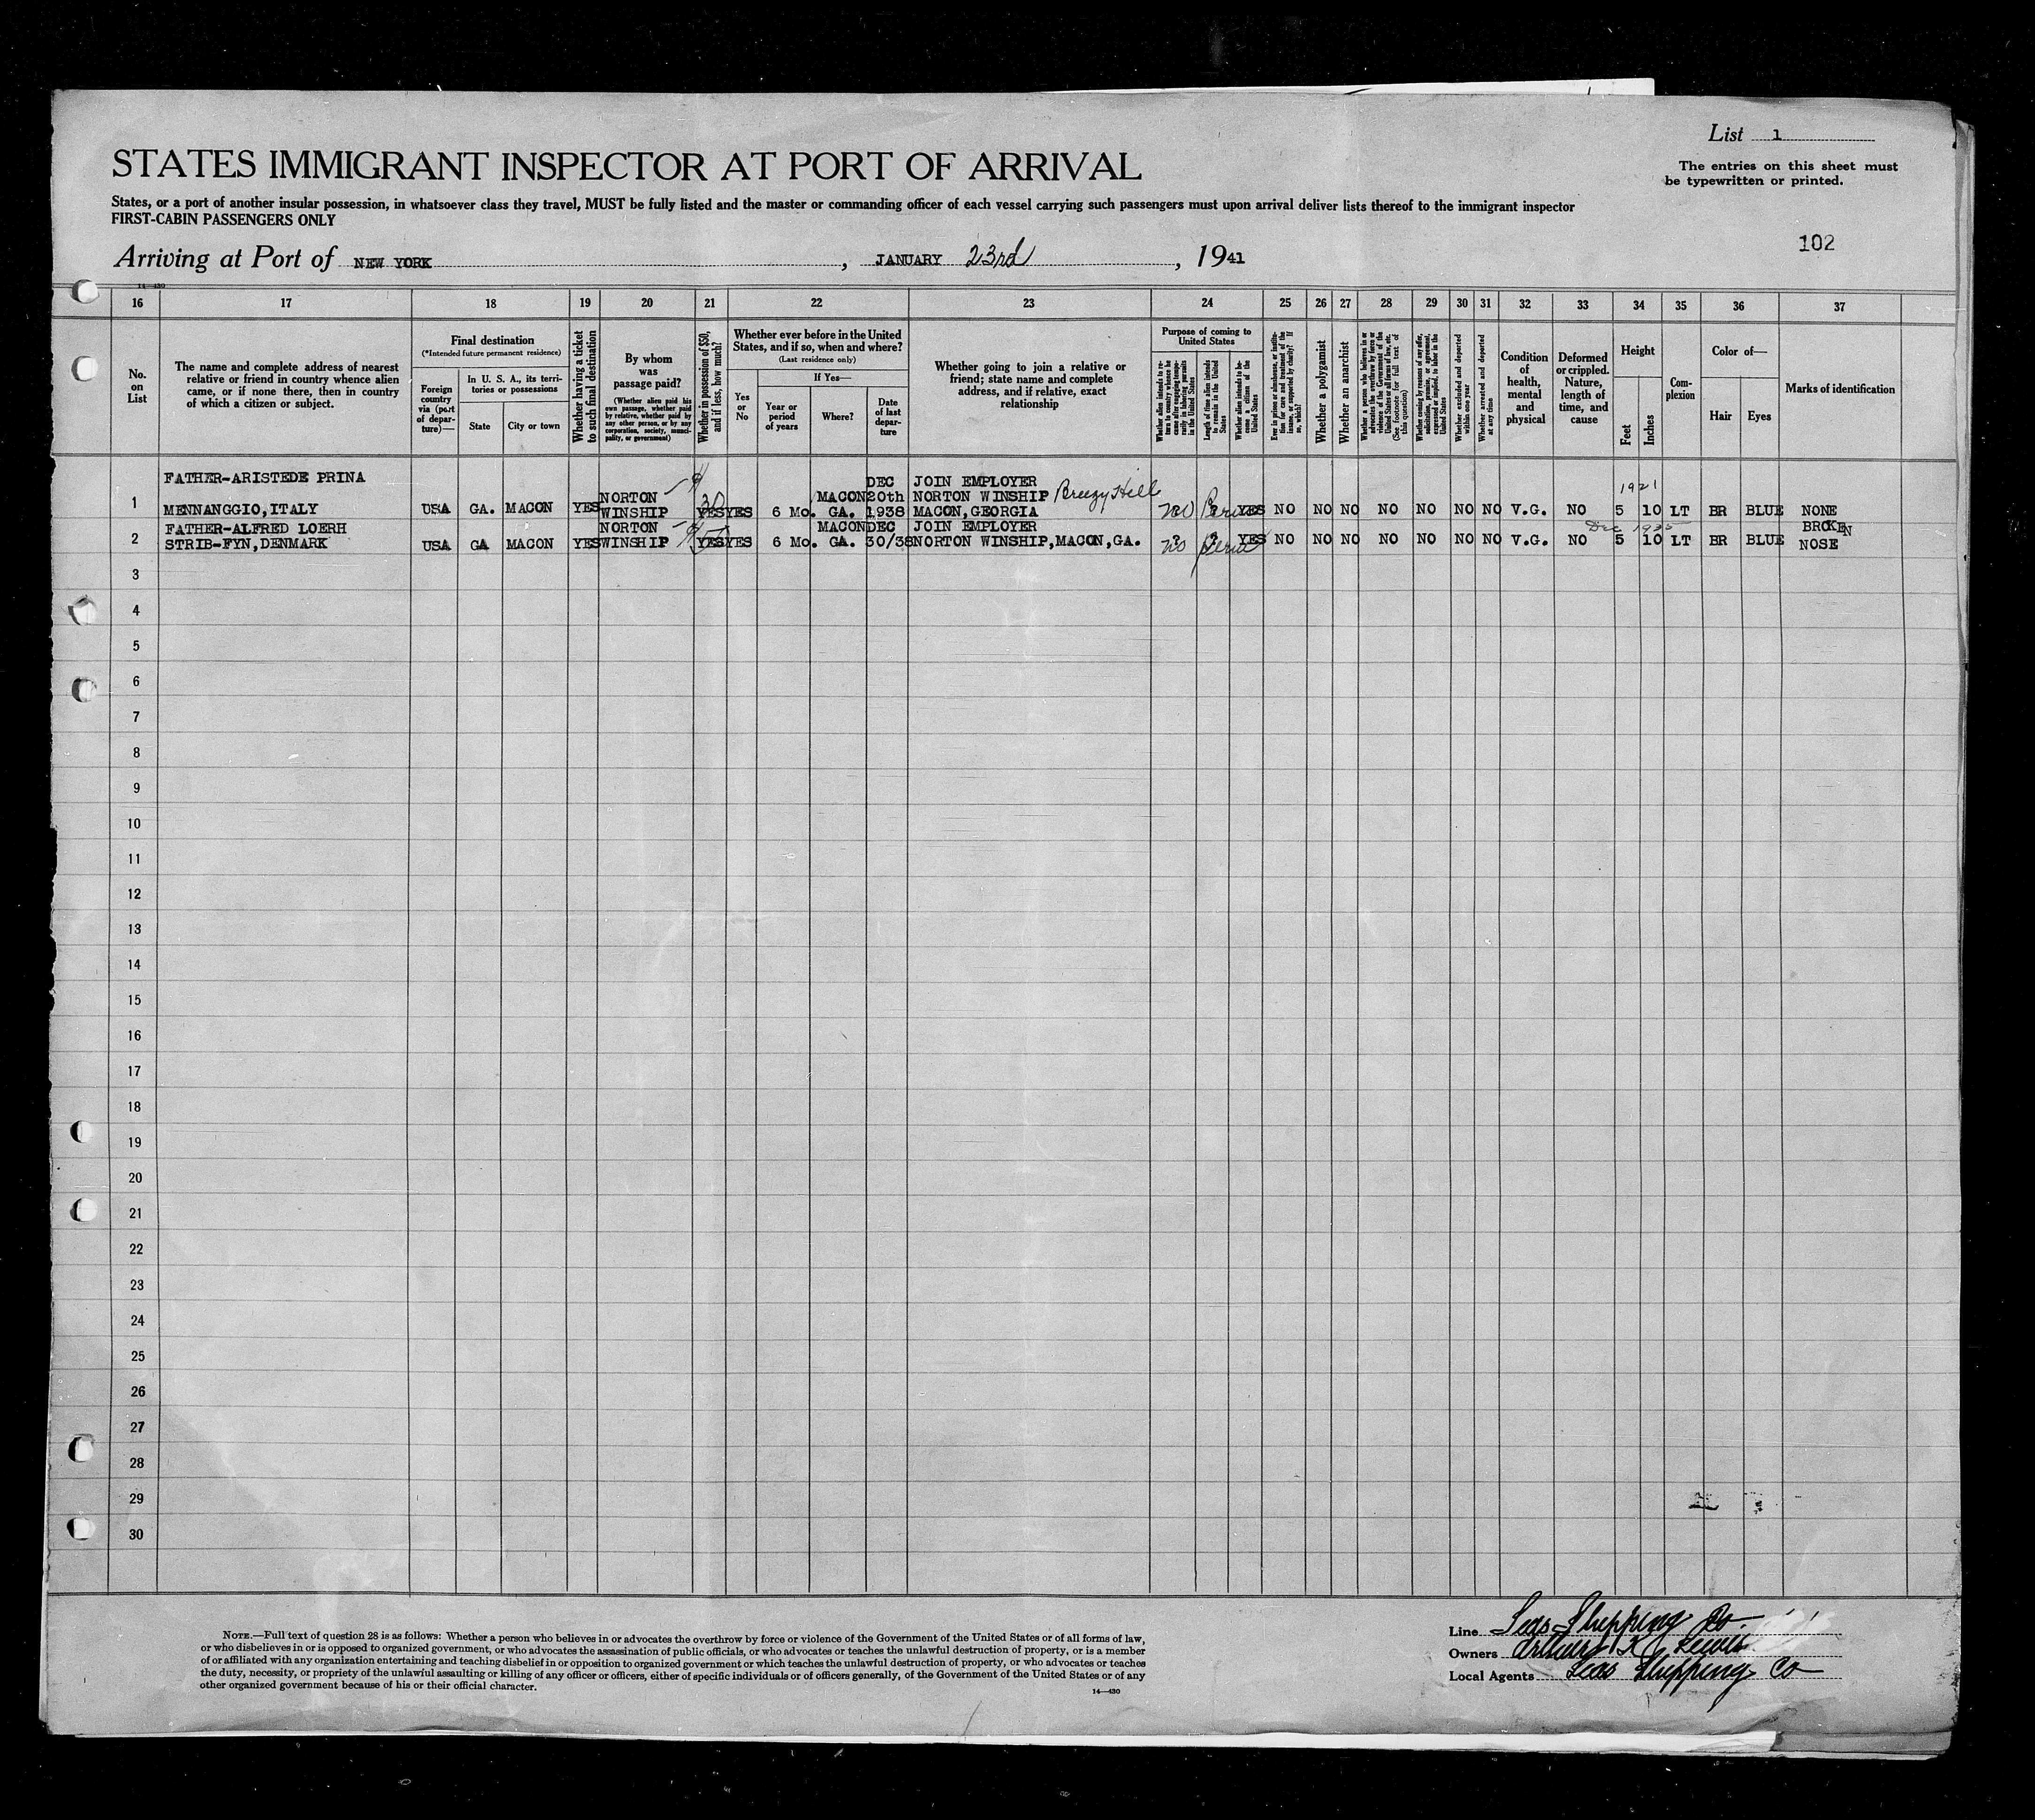 List 1
The entries on this sheet must
be typewritten or printed.
STATES IMMIGRANT INSPECTOR AT PORT OF ARRIVAL
States, or a port of another insular possession, in whatsoever class they travel, MUST be fully listed and the master or commanding officer of each vessel carrying such passengers must upon arrival deliver lists thereof to the immigrant inspector
FIRST-CABIN PASSENGERS ONLY
102
Arriving at Port of NEW YORK, JANUARY 23rd, 1941
14—430
16 17 18 19 20 21 22 23 24 25 26 27 28 29 30 31 32 33 34 35 36 37
No. on List
The name and complete address of nearest
relative or friend in country whence alien
came, or if none there, then in country
of which a citizen or subject.
Final destination
(*Intended future permanent residence)
Foreign country via (port of departure)—
In U. S. A., its territories or possessions
State
City or town
Whether having a ticket to such final destination
By whom was passage paid?
(Whether alien paid his own passage, whether paid by relative, whether paid by any other person, or by any corporation, society, municipality, or government)
Whether in possession of $50, and if less, how much?
Whether ever before in the United States, and if so, when and where?
(Last residence only)
Yes or No
If Yes—
Year or period of years
Where?
Date of last departure
Whether going to join a relative or
friend; state name and complete
address, and if relative, exact
relationship
Purpose of coming to United States
Length of time alien intends to remain in the United States
Whether alien intends to become a citizen of the United States
Whether a polygamist
Whether an anarchist
(See footnote for full text of this question)
Whether excluded and deported within one year
Whether arrested and deported at any time
Condition of health, mental and physical
Deformed or crippled. Nature, length of time, and cause
Height
Feet
Inches
Complexion
Color of—
Hair
Eyes
Marks of identification
1 FATHER-ARISTEDE PRINA
MENNANGGIO,ITALY USA GA. MACON YES NORTON WINSHIP 30 YES YES 6 Mo. MACON GA. DEC 20th 1938 JOIN EMPLOYER NORTON WINSHIP Breezy Hill MACON,GEORGIA no YES NO NO NO NO NO NO NO V.G. NO 1921 5 10 LT BR BLUE NONE
2 FATHER-ALFRED LOERH
STRIB-FYN,DENMARK USA GA MACON YES NORTON WINSHIP YES YES 6 Mo. MACON GA. DEC 30/38 JOIN EMPLOYER NORTON WINSHIP,MACON,GA. no YES NO NO NO NO NO NO NO V.G. NO Dec 1935 5 10 LT BR BLUE BROKEN NOSE
3
4
5
6
7
8
9
10
11
12
13
14
15
16
17
18
19
20
21
22
23
24
25
26
27
28
29
30
NOTE.—Full text of question 28 is as follows: Whether a person who believes in or advocates the overthrow by force or violence of the Government of the United States or of all forms of law,
or who disbelieves in or is opposed to organized government, or who advocates the assassination of public officials, or who advocates or teaches the unlawful destruction of property, or is a member
of or affiliated with any organization entertaining and teaching disbelief in or opposition to organized government or which teaches the unlawful destruction of property, or who advocates or teaches
the duty, necessity, or propriety of the unlawful assaulting or killing of any officer or officers, either of specific individuals or of officers generally, of the Government of the United States or of any
other organized government because of his or their official character.
14—430
Line Seas Shipping Co
Owners Arthur R Lewis
Local Agents Seas Shipping Co